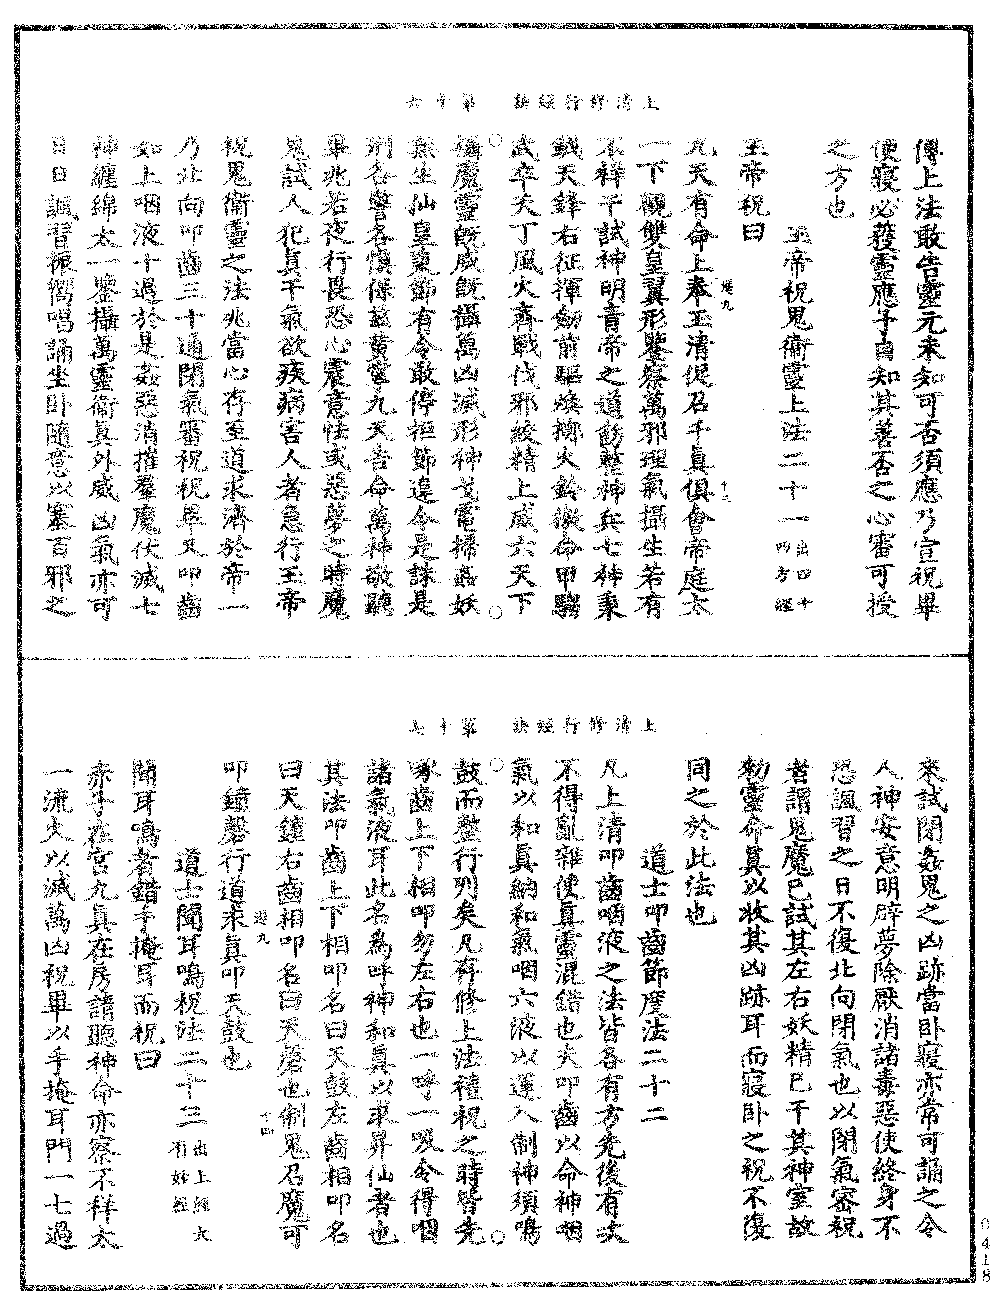 上清修行經訣　第十六
傳上法敢告靈元未知可否須應乃宣祝畢
便寢必獲靈應子自知其善否之心審可授
之方也
玉帝祝鬼衛靈上法二十一出四十四方經
玉帝祝曰
九天有命上奉玉清促召千真俱會帝庭太
一下觀雙皇翼形鑒察萬邪理氣攝生若有
不祥干試神明音帝之道飭整神兵七神秉
鉞天鋒右征揮劒前驅煥擲火鈴徵命甲騶
武卒天丁風火齊戰伐邪絞精上威六天下
攝魔靈既威既攝萬凶滅形神戈電掃姦妖
無生仙皇秉節有令敢停拒節違令是誅是
刑各警各慎保兹黃寧九天告命萬神敬聽
畢兆若夜行畏恐心震意怯或惡夢之時魔
鬼試人犯真干氣欲疾病害人者急行玉帝
祝鬼衛靈之法兆當心存至道求濟於帝一
乃北向叩齒三十通閉氣審祝祝畢又叩齒
如上咽液十過於是姦惡消摧羣魔伏滅七
神纏綿太一鑒攝萬靈衛真外威凶氣亦可
日日諷習振響唱誦坐卧隨意以塞百邪之
上清修行經訣　第十七
來試閉姦鬼之凶跡當卧寢亦常可誦之令
人神安意明辟夢除厭消諸毒惡使終身不
恐諷習之日不復北向閉氣也以閉氣審祝
者謂鬼魔已試其左右妖精已干其神室故
勅靈命真以收其凶跡耳而寢卧之祝不復
同之於此法也
道士叩齒節度法二十二
凡上清叩齒咽液之法皆各有方先後有次
不得亂雜使真靈混錯也夫叩齒以命神咽
氣以和真納和氣咽六液以運入制神須鳴
鼓而整行列矣凡存修上法禮祝之時皆先
啄齒上下相叩勿左右也一呼一吸令得咽
諸氣液耳此名為呼神和真以求昇仙者也
其法叩齒上下相叩名曰天鼓左齒相叩名
曰天鐘右齒相叩名曰天磬也制鬼召魔可
叩鐘磬行道求真叩天鼓也
道士聞耳鳴祝法二十三出上經大有妙經
聞耳鳴者錯手掩耳而祝曰
赤子在宮九真在房請聽神命亦察不祥太
一流火以滅萬凶祝畢以手掩耳門二七過
0418